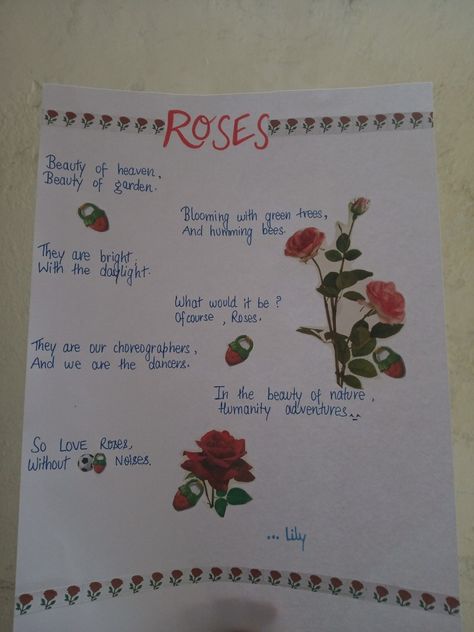 ROSES
Beauty of heaven,
Beauty of garden.
Blooming with green trees,
And humming bees.
They are bright
With the daylight.
What would it be ?
Ofcourse , Roses.
They are our choreographers,
And we are the dancers.
In the beauty of nature ,
Humanity adventures...
So LOVE Roses,
Without Noises.
... Lily